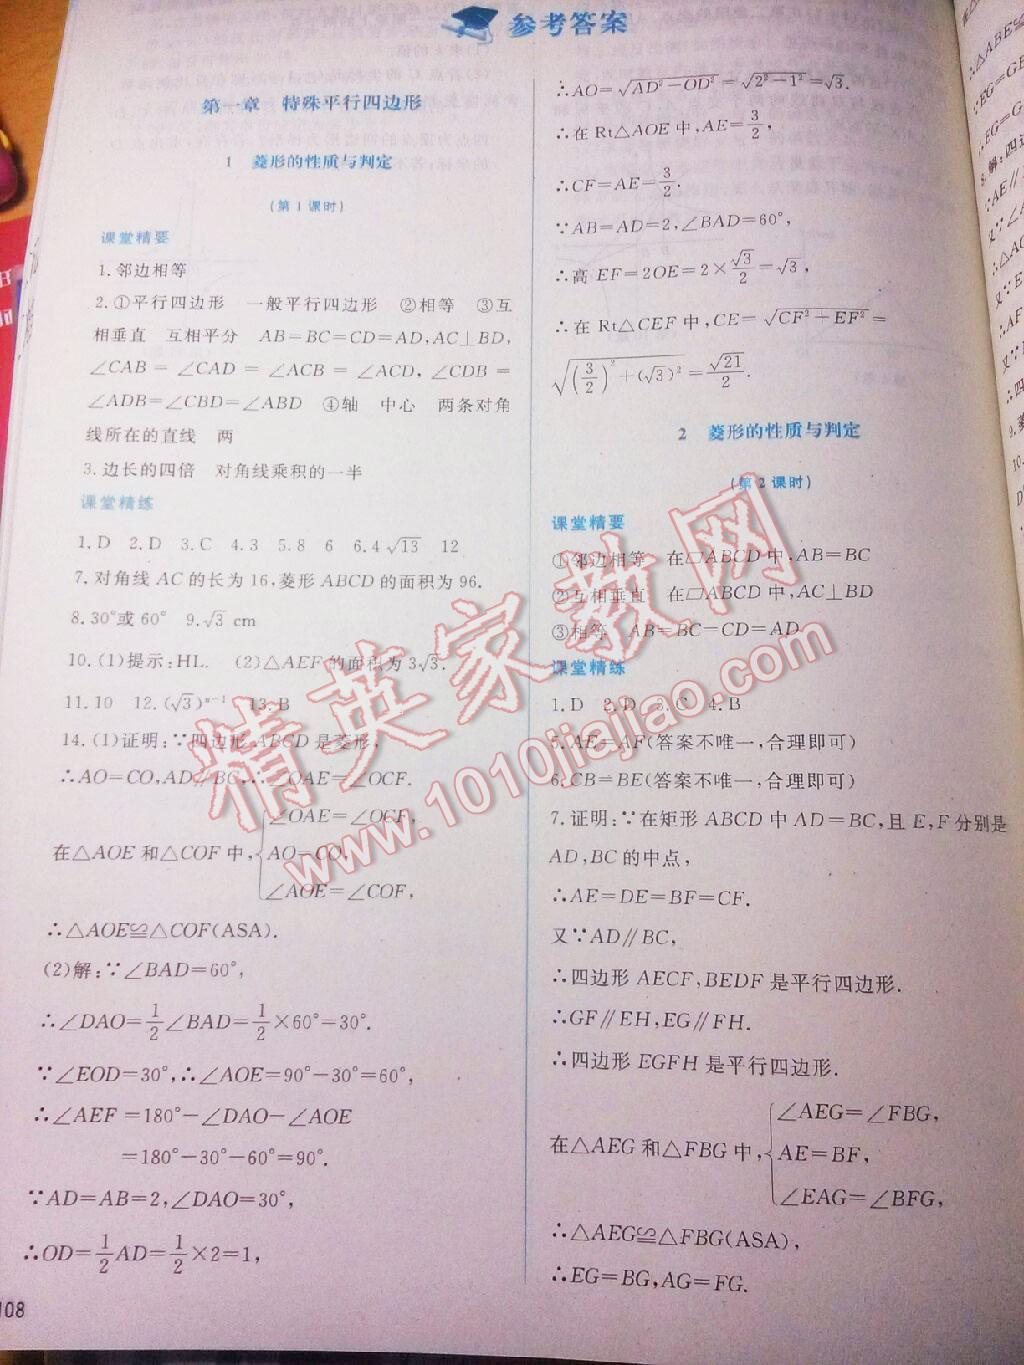 参考答案
第一章 特殊平行四边形
1 菱形的性质与判定
(第1课时)
课堂精要
1.邻边相等
2.①平行四边形 一般平行四边形 ②相等 ③互
相垂直 互相平分 AB=BC=CD=AD,AC⊥BD,
∠CAB=∠CAD=∠ACB=∠ACD,∠CDB=
∠ADB=∠CBD=∠ABD ④轴 中心 两条对角
线所在的直线 两
3.边长的四倍 对角线乘积的一半
课堂精练
1.D 2.D 3.C 4.3 5.8 6 6.4√13 12
7.对角线AC的长为16,菱形ABCD的面积为96.
8.30°或60° 9.√3 cm
10.(1)提示:HL. (2)△AEF的面积为3√3.
11.10 12.(√3)ⁿ⁻¹ 13.B
14.(1)证明:∵四边形ABCD是菱形,
∴AO=CO,AD∥BC,∴∠OAE=∠OCF.
∠OAE=∠OCF,
在△AOE和△COF中,{AO=CO,
∠AOE=∠COF,
∴△AOE≌△COF(ASA).
(2)解:∵∠BAD=60°,
∴∠DAO=1/2∠BAD=1/2×60°=30°.
∵∠EOD=30°,∴∠AOE=90°-30°=60°,
∴∠AEF=180°-∠DAO-∠AOE
=180°-30°-60°=90°.
∵AD=AB=2,∠DAO=30°,
∴OD=1/2AD=1/2×2=1,
108
∴AO=√(AD²-OD²)=√(2²-1²)=√3.
∴在Rt△AOE中,AE=3/2,
∴CF=AE=3/2.
∵AB=AD=2,∠BAD=60°,
∴高EF=2OE=2×√3/2=√3,
∴在Rt△CEF中,CE=√(CF²+EF²)=
√((3/2)²+(√3)²)=√21/2.
2 菱形的性质与判定
(第2课时)
课堂精要
①邻边相等 在▱ABCD中,AB=BC
②互相垂直 在▱ABCD中,AC⊥BD
③相等 AB=BC=CD=AD
课堂精练
1.D 2.D 3.C 4.B
5.AE=AF(答案不唯一,合理即可)
6.CB=BE(答案不唯一,合理即可)
7.证明:∵在矩形ABCD中AD=BC,且E,F分别是
AD,BC的中点,
∴AE=DE=BF=CF.
又∵AD∥BC,
∴四边形AECF,BEDF是平行四边形.
∴GF∥EH,EG∥FH.
∴四边形EGFH是平行四边形.
∠AEG=∠FBG,
在△AEG和△FBG中,{AE=BF,
∠EAG=∠BFG,
∴△AEG≌△FBG(ASA),
∴EG=BG,AG=FG.
精英家教网
www.1010jiajiao.com